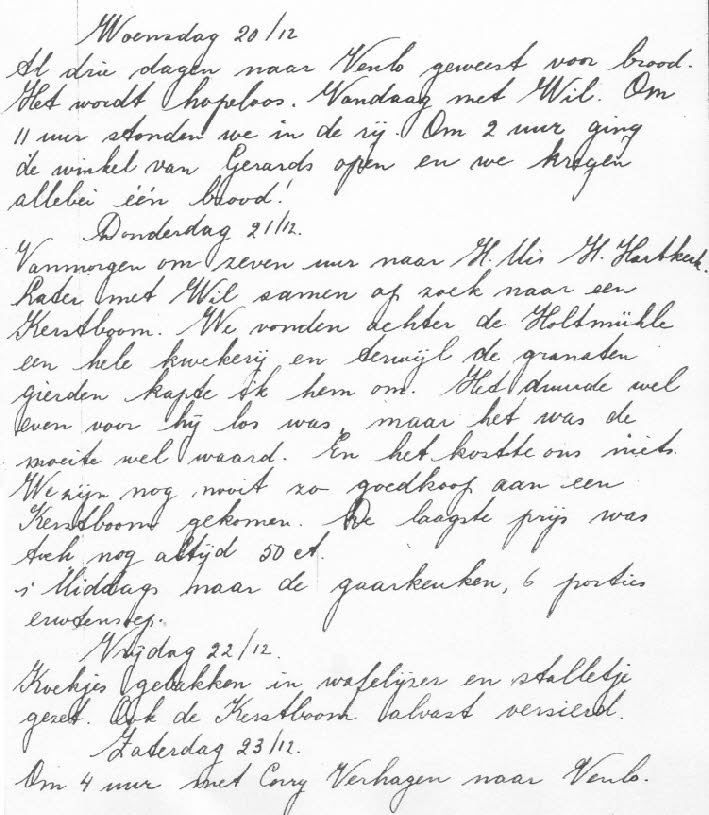 Woensdag 20/12
Al drie dagen naar Venlo geweest voor brood.
Het wordt hopeloos. Vandaag met Wil. Om
11 uur stonden we in de rij. Om 2 uur ging
de winkel van Gerards open en we kregen
allebei één brood!
Donderdag 21/12.
Vanmorgen om zeven uur naar H. Mis H. Hartkerk.
Later met Wil samen op zoek naar een
Kerstboom. We vonden achter de Holtmühle
een hele kwekerij en terwijl de granaten
gierden kapte ik hem om. Het duurde wel
even voor hij los was, maar het was de
moeite wel waard. En het kostte ons niets.
We zijn nog nooit zo goedkoop aan een
Kerstboom gekomen. De laagste prijs was
toch nog altijd 50 ct.
's Middags naar de gaarkeuken, 6 porties
erwtensoep.
Vrijdag 22/12.
Koekjes gebakken in wafelijzer en stalletje
gezet. Ook de Kerstboom alvast versierd.
Zaterdag 23/12.
Om 4 uur met Corry Verhagen naar Venlo.